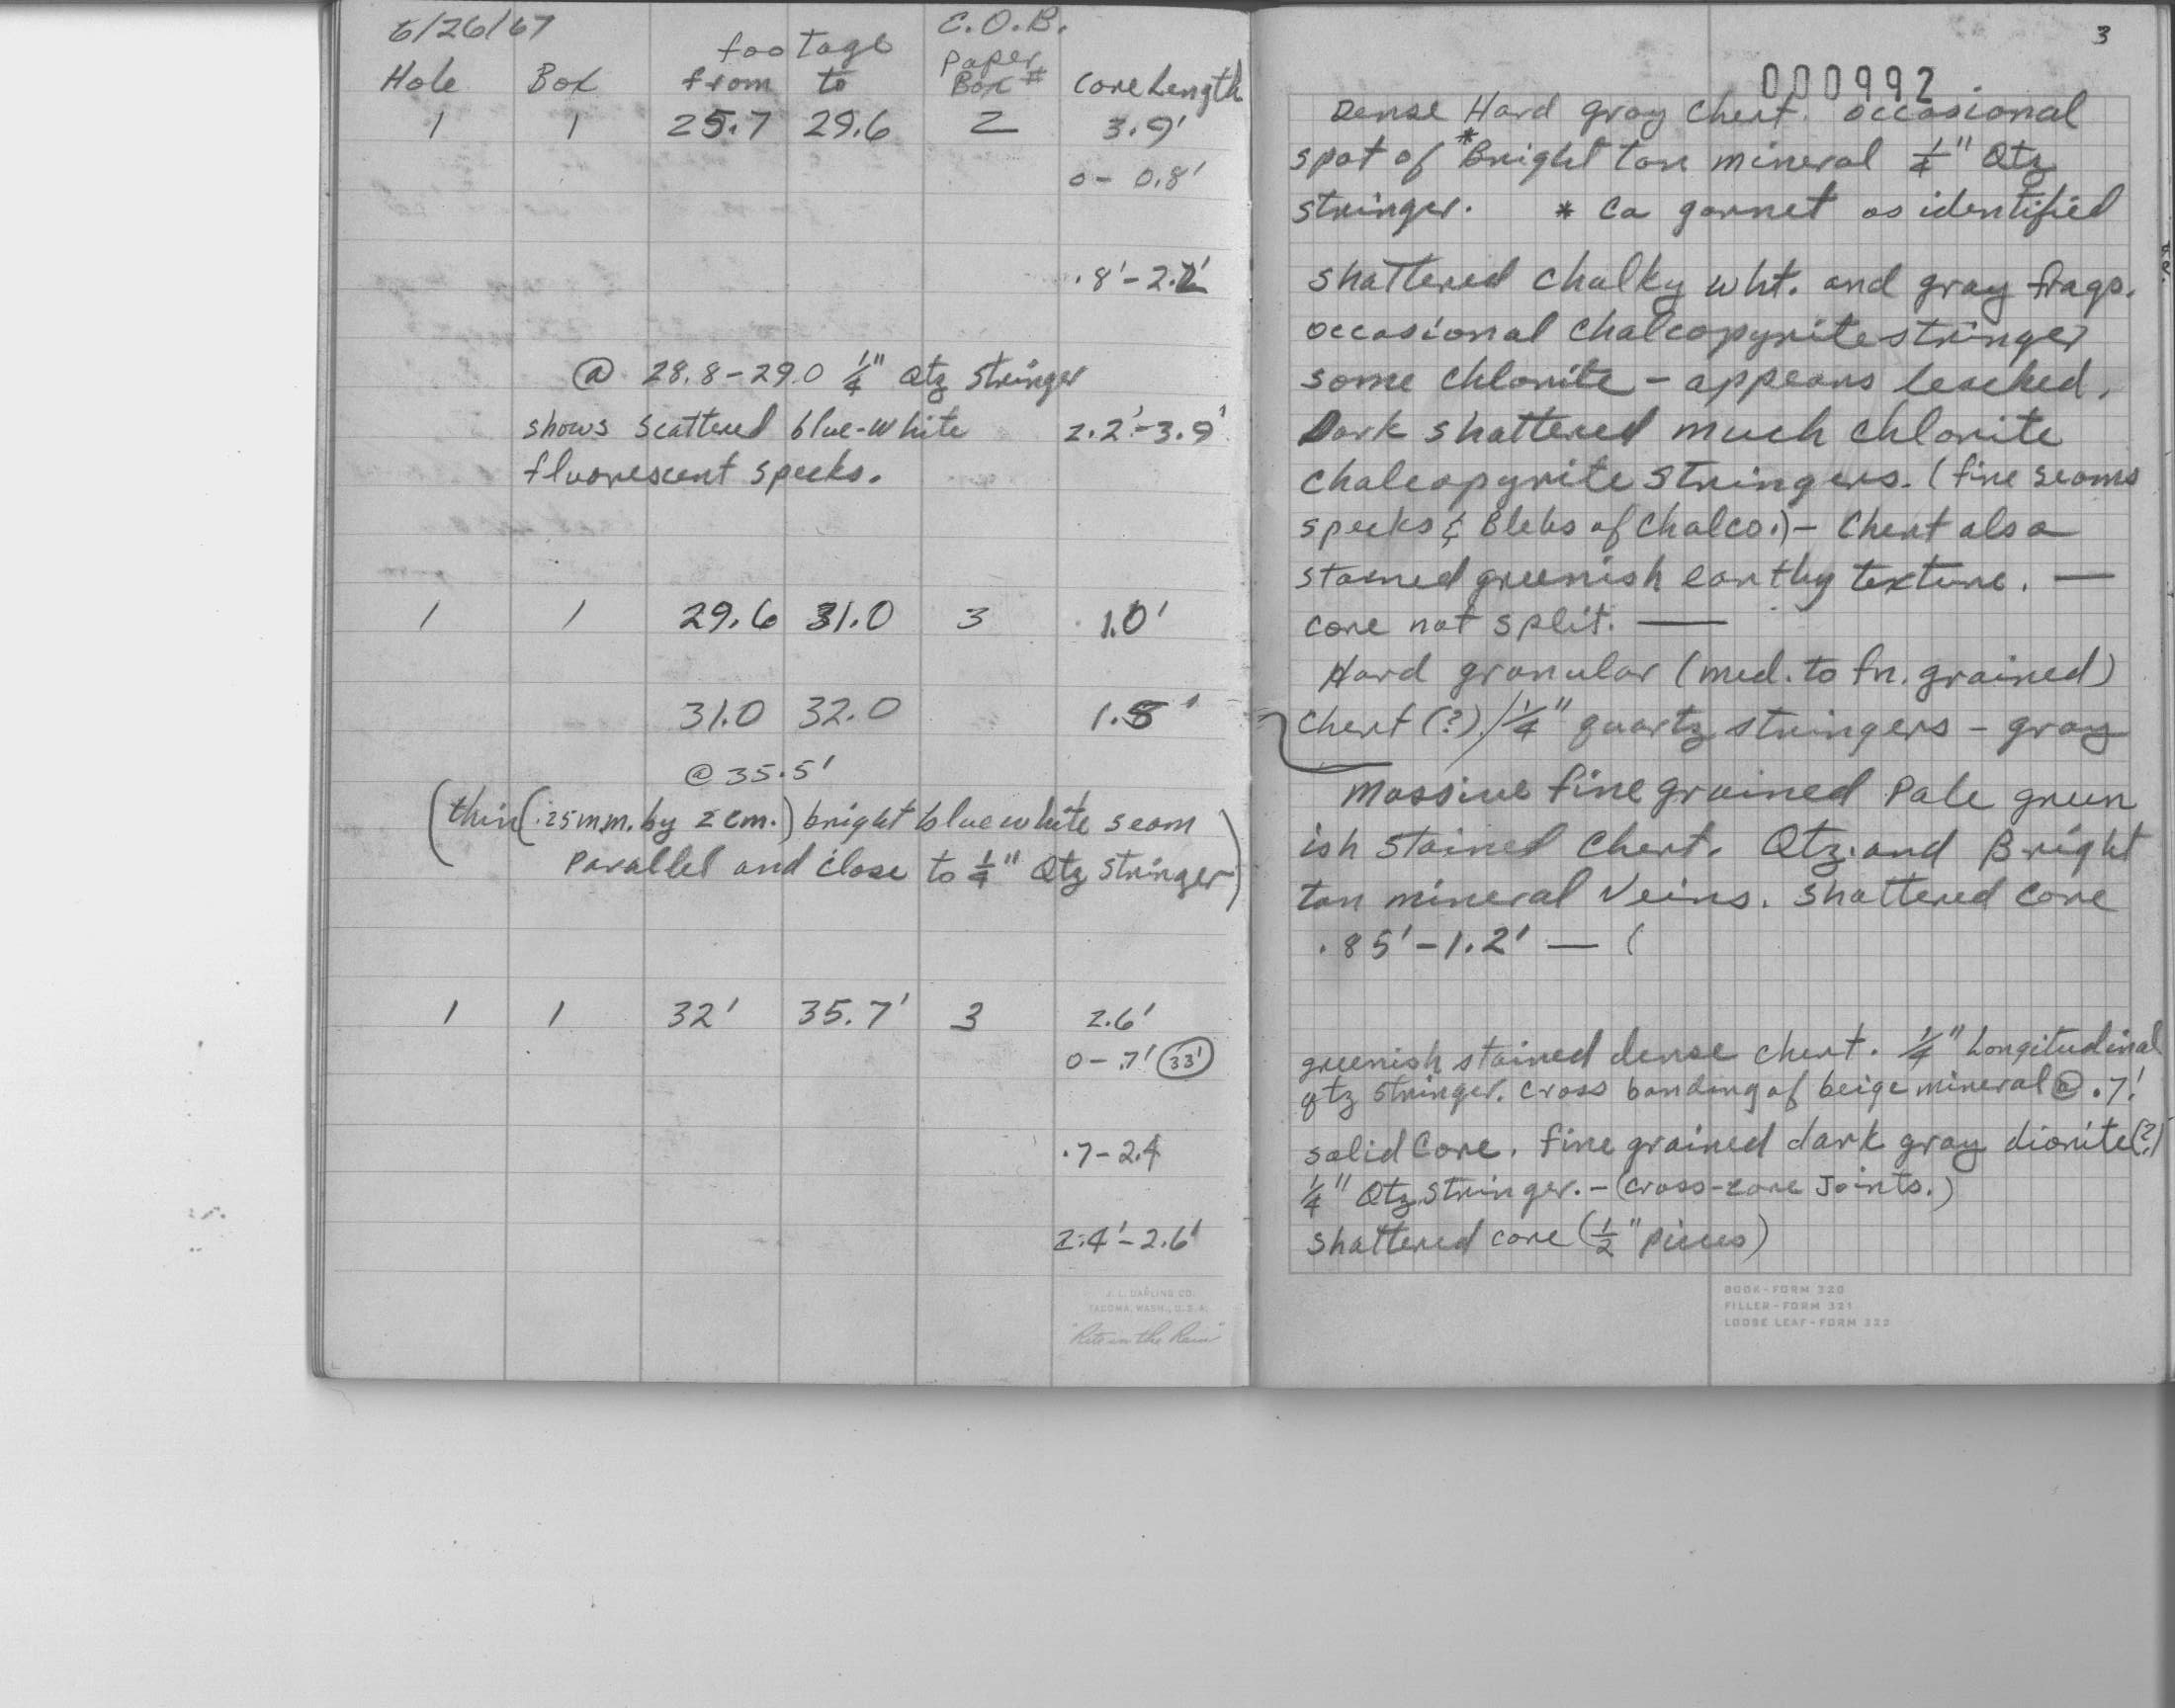 6/26/67
E.O.B.
footage
Paper
Hole Box from to Box # Core Length
1 1 25.7 29.6 2 3.9'
0 - 0.8'
.8' - 2.2'
@ 28.8 - 29.0 1/4" Qtz stringer
shows scattered blue-white 2.2' - 3.9'
fluorescent specks.
1 1 29.6 31.0 3 1.0'
31.0 32.0 1.5'
@ 35.5'
(thin (.25 m.m. by 2 cm.) bright blue white seam
Parallel and close to 1/4" Qtz stringer)
1 1 32' 35.7' 3 2.6'
0 - .7' (33')
.7 - 2.4
2.4' - 2.6'
J. L. DARLING CO.
TACOMA, WASH., U.S.A.
"Rite in the Rain"
3
000992
Dense Hard gray chert. occasional
spot of *Bright tan mineral 1/4" Qtz
stringer. * Ca garnet as identified
shattered chalky wht. and gray frags.
occasional chalcopyrite stringer
some chlorite - appears leached.
Dark shattered much chlorite
chalcopyrite stringers. (fine seams
specks & Blebs of chalco.) - Chert also
stained greenish earthy texture. —
core not split. —
Hard granular (med. to fn. grained)
chert (?) / 1/4" quartz stringers - gray
Massive fine grained Pale green
ish stained chert. Qtz. and Bright
tan mineral veins. shattered core
.85' - 1.2' — (
greenish stained dense chert. 1/4" Longitudinal
qtz stringer. cross banding of beige mineral @ .7'
solid core. fine grained dark gray diorite (?)
1/4" Qtz stringer. - (cross-core joints.)
shattered core (1/2" pieces)
BOOK-FORM 320
FILLER-FORM 321
LOOSE LEAF-FORM 322